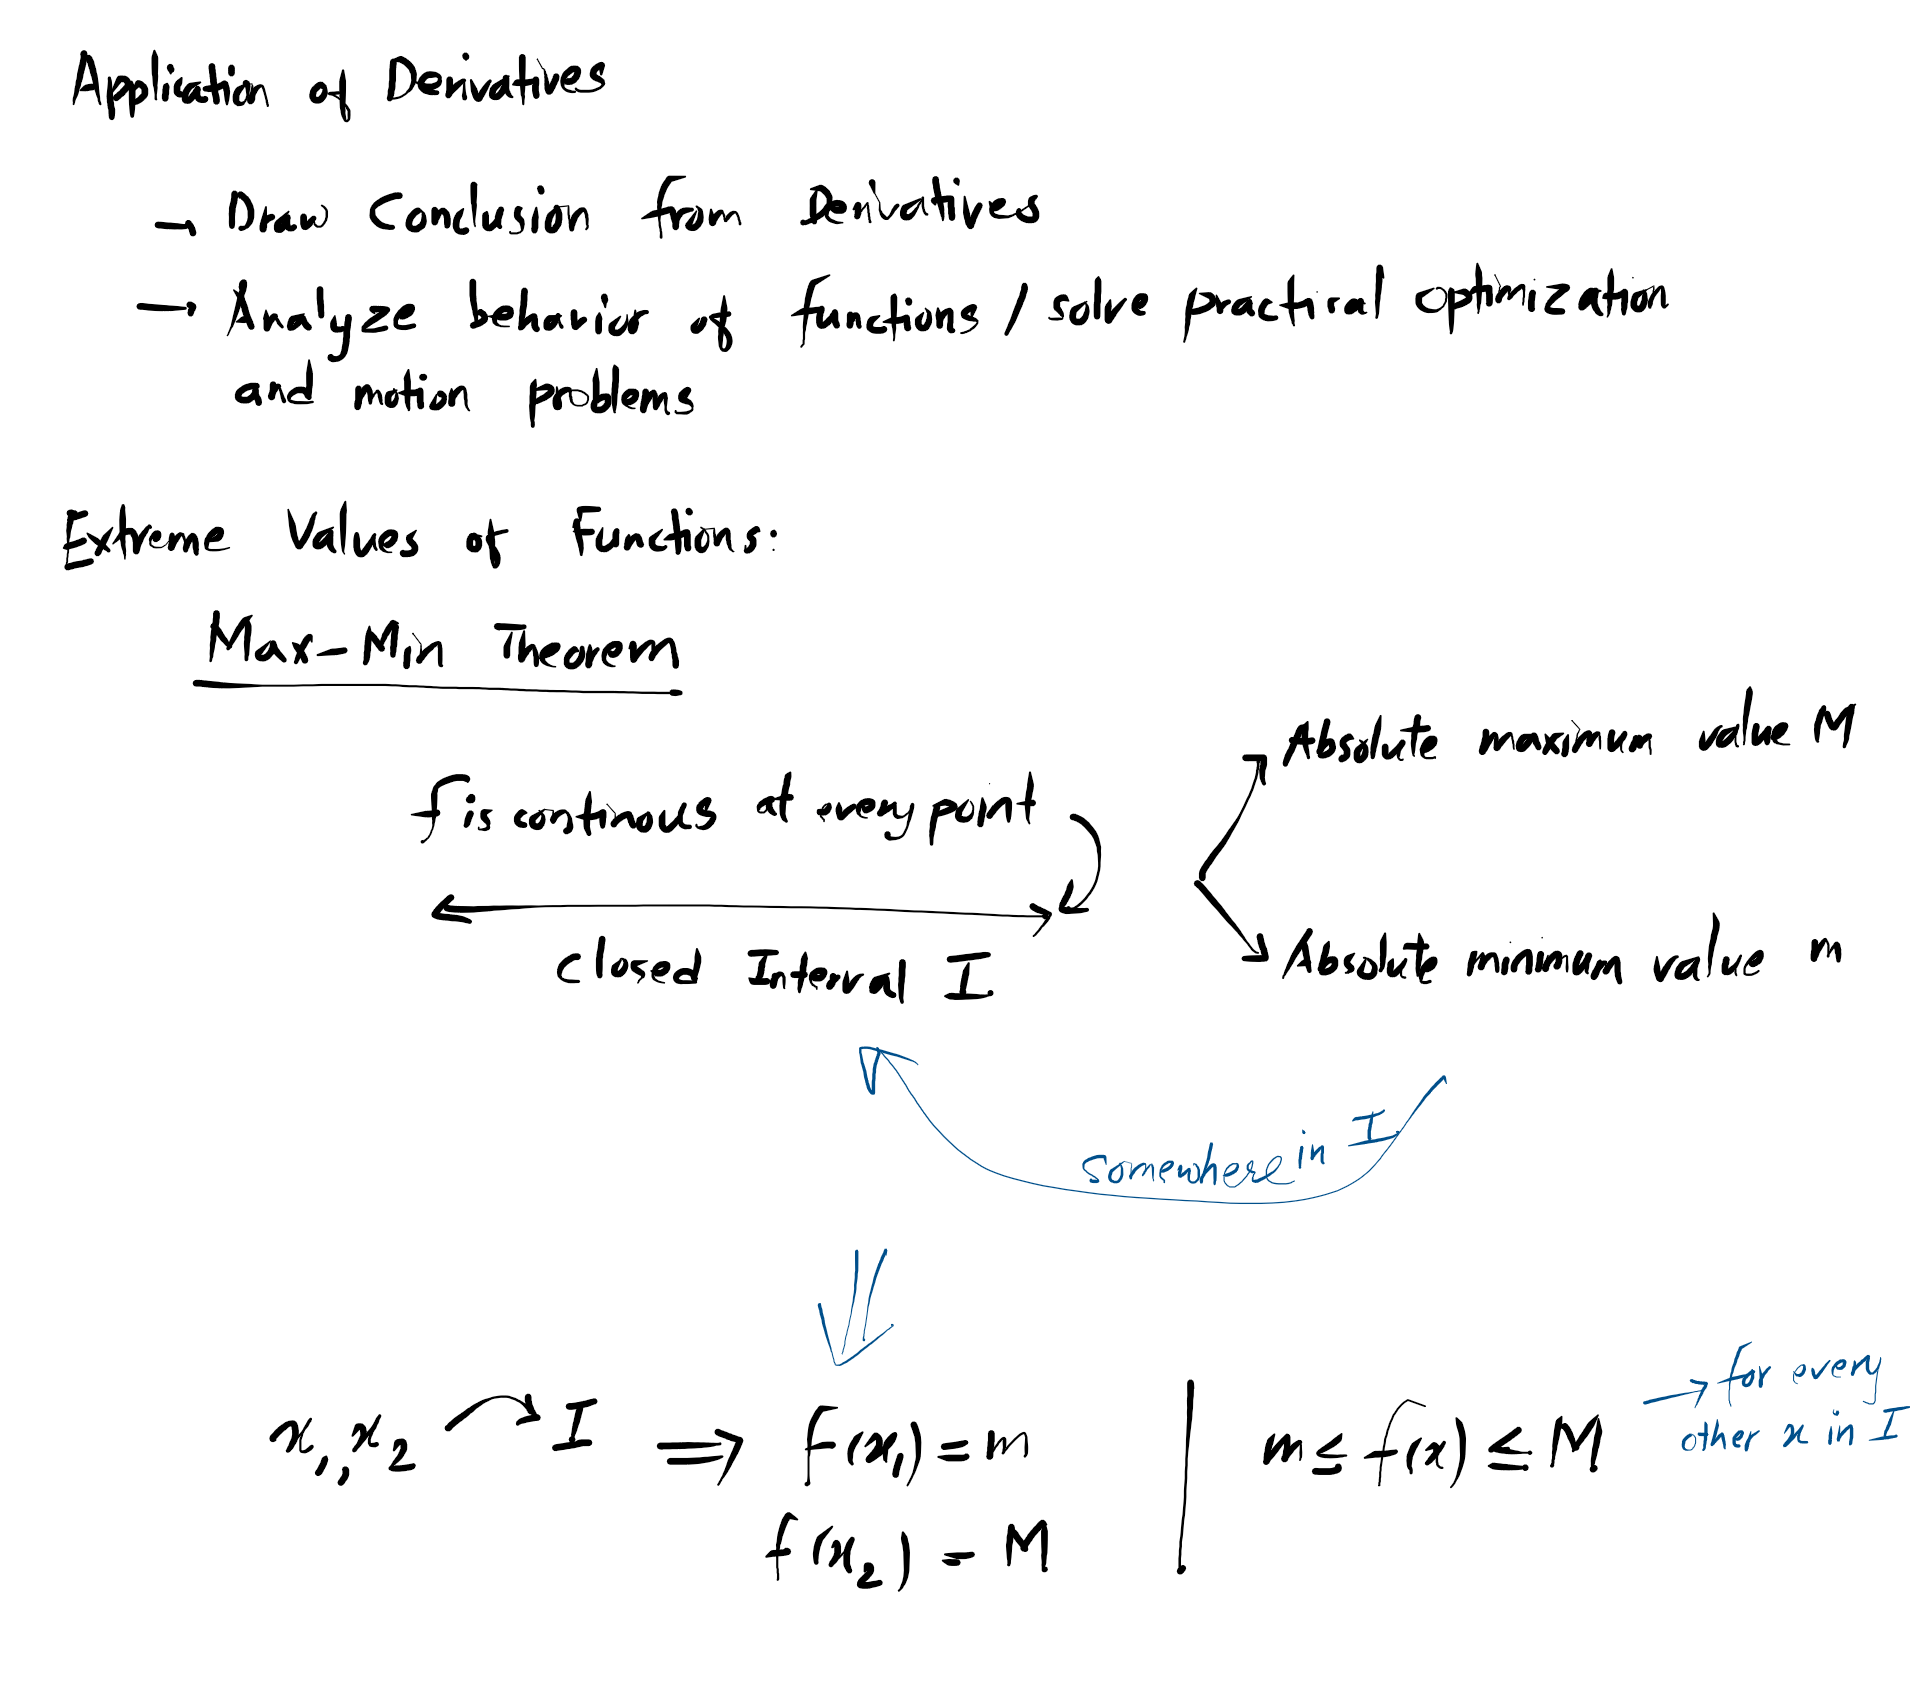 Application of Derivatives
→ Draw Conclusion from Derivatives
→ Analyze behavior of functions / solve practical optimization
and motion problems
Extreme Values of Functions:
Max-Min Theorem
Absolute maximum value M
f is continous at every point
Closed Interval I
Absolute minimum value m
somewhere in I
→ for every
other x in I
x₁, x₂ → I ⇒ f(x₁) = m | m ≤ f(x) ≤ M
f(x₂) = M